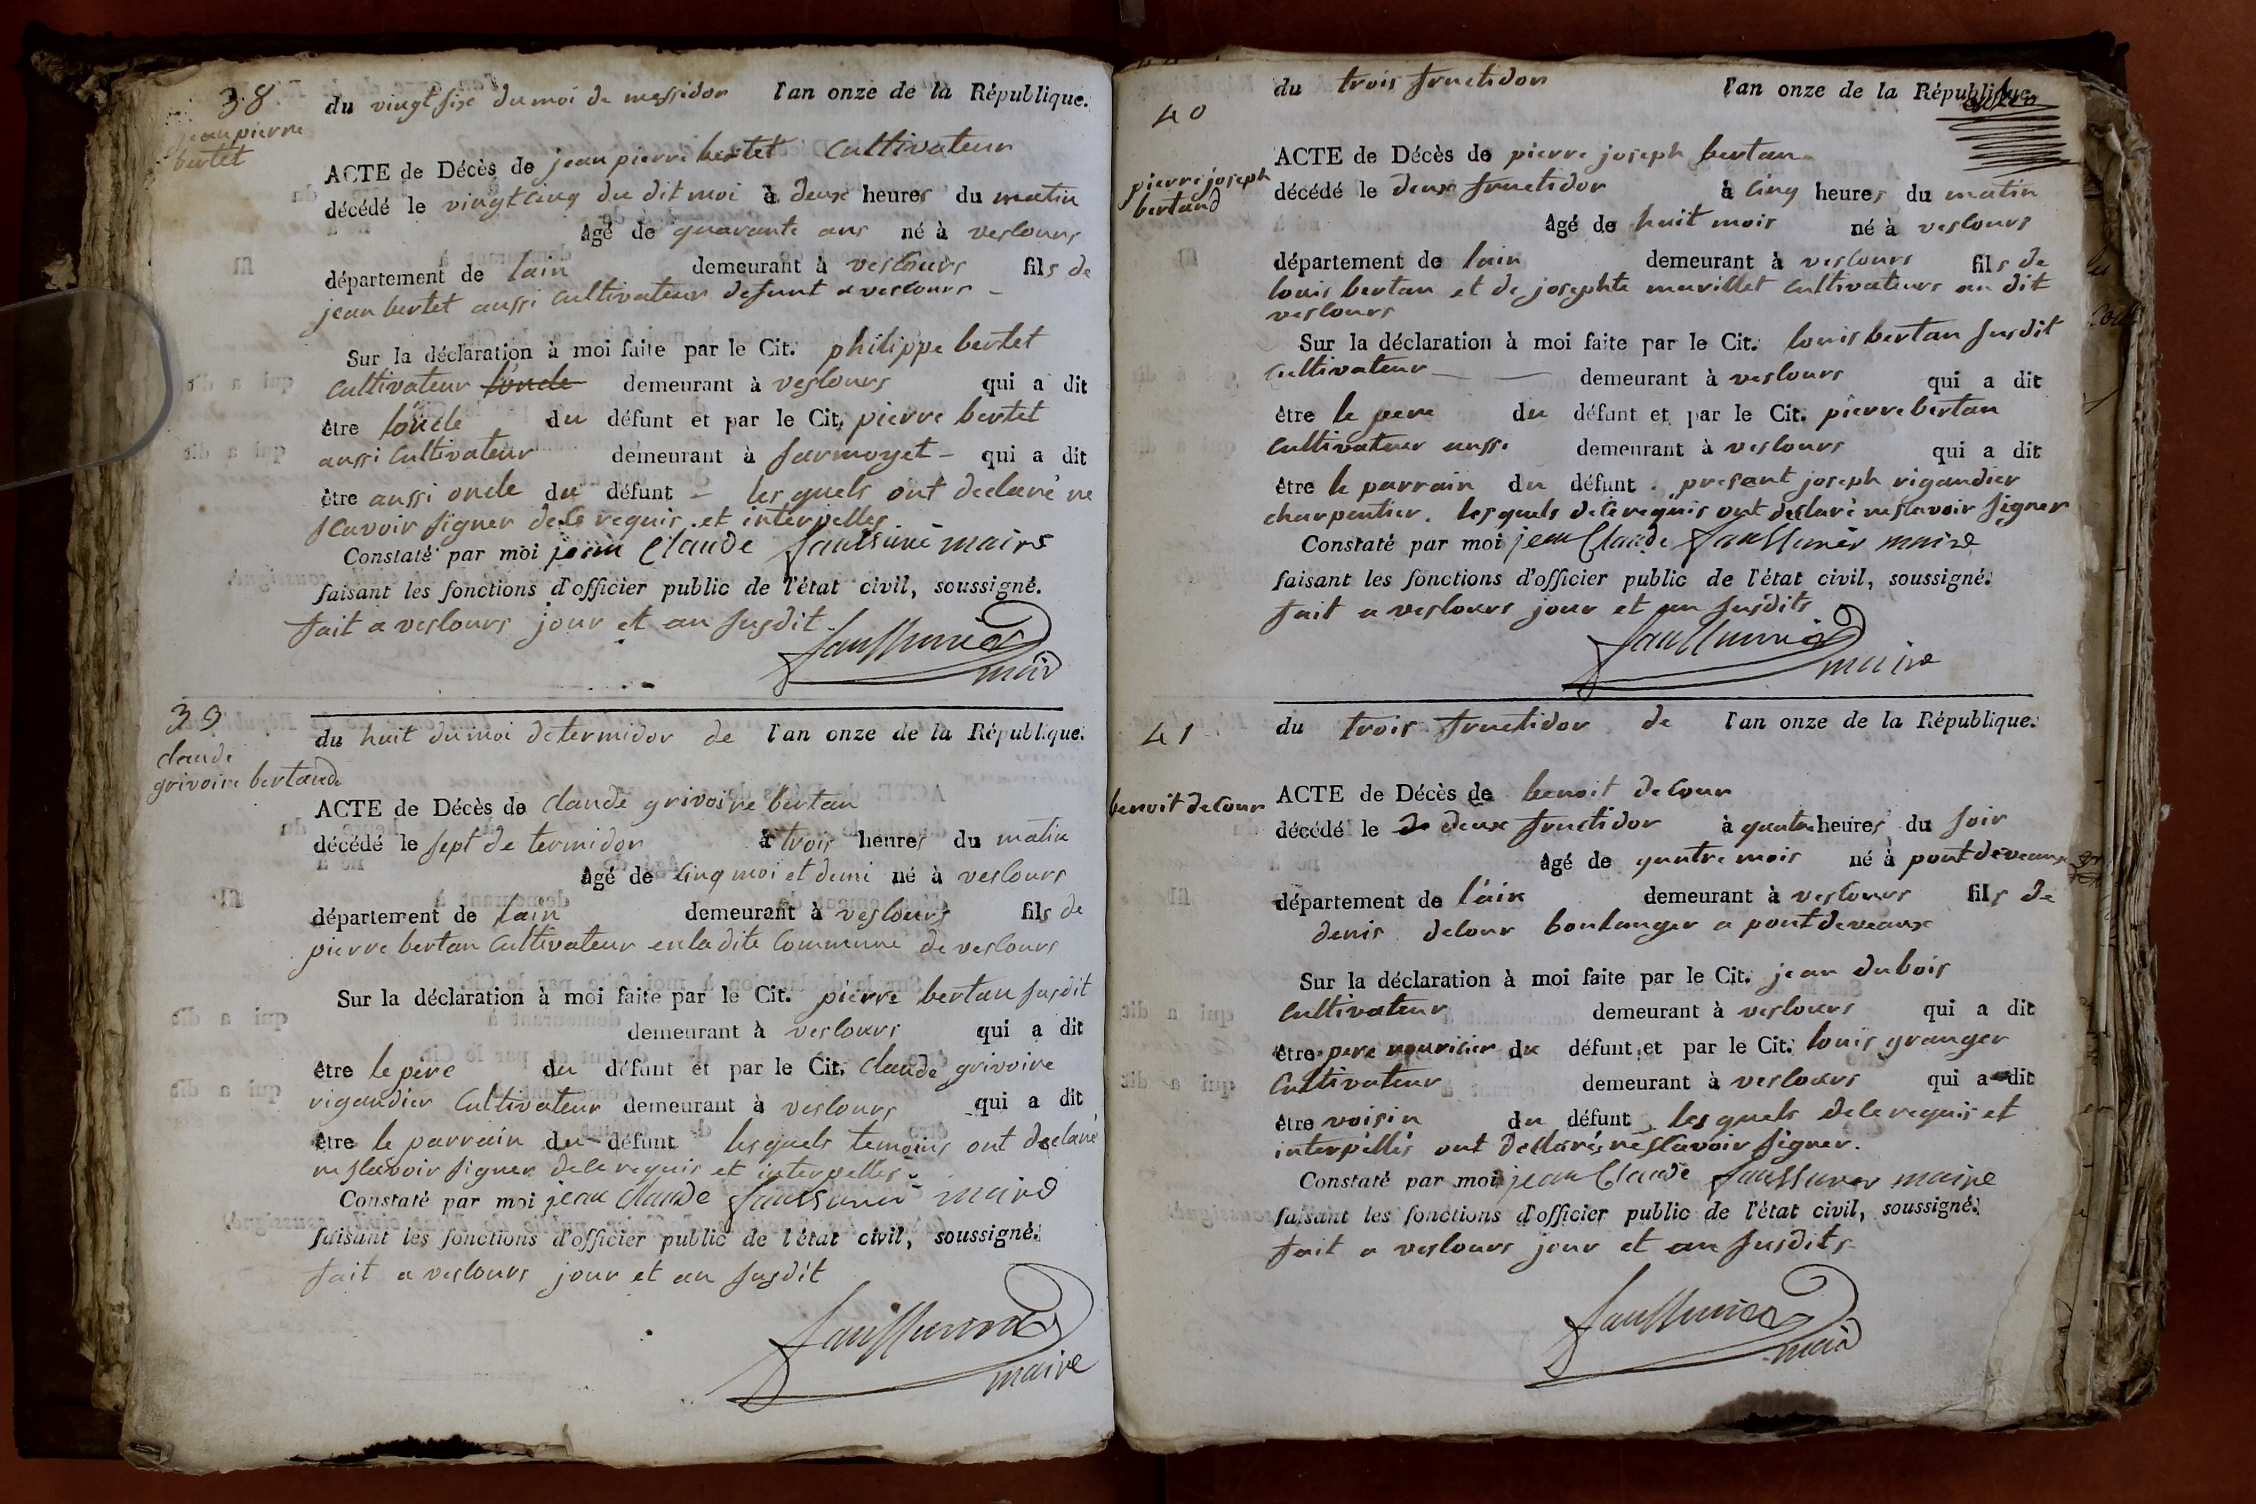 38
jean pierre
bertet
du vingt six du moi de messidor l'an onze de la République.
ACTE de Décès de jean pierre bertet Cultivateur
décédé le vingt cinq du dit moi à deux heures du matin
âgé de quarante ans né à vescours
département de lain demeurant à vescours fils de
jean bertet aussi Cultivateur defunt a vescours -
Sur la déclaration à moi faite par le Cit. philippe bertet
Cultivateur l'oncle demeurant à vescours qui a dit
être l'oncle du défunt et par le Cit. pierre bertet
aussi Cultivateur demeurant à sermoyet - qui a dit
être aussi oncle du défunt - les quels ont declaré ne
scavoir signer de ce requis et interpelles.
Constaté par moi jean Claude maire
faisant les fonctions d'officier public de l'état civil, soussigné.
fait a vescours jour et an susdit
maire
39
claude
grivoire bertand
du huit du moi de termidor de l'an onze de la République.
ACTE de Décès de Claude grivoire bertan
décédé le sept de termidor à trois heures du matin
âgé de cinq moi et demi né à vescours
département de lain demeurant à vescours fils de
pierre bertan Cultivateur en la dite Commune de vescours
Sur la déclaration à moi faite par le Cit. pierre bertan susdit
demeurant à vescours qui a dit
être le père du défunt et par le Cit. Claude grivoire
rigaudier Cultivateur demeurant à vescours qui a dit
être le parrain du défunt les quels temoins ont declaré
ne scavoir signer de ce requis et interpelles.
Constaté par moi jean Claude maire
faisant les fonctions d'officier public de l'état civil, soussigné.
fait a vescours jour et an susdit
maire
40
pierre joseph
bertand
du trois fructidor l'an onze de la République.
ACTE de Décès de pierre joseph bertan
décédé le deux fructidor à cinq heures du matin
âgé de huit mois né à vescours
département de lain demeurant à vescours fils de
louis bertan et de josephte marillet Cultivateurs au dit
vescours
Sur la déclaration à moi faite par le Cit. louis bertan susdit
Cultivateur demeurant à vescours qui a dit
être le pere du défunt et par le Cit. pierre bertan
Cultivateur aussi demeurant à vescours qui a dit
être le parrain du défunt. présent joseph rigaudier
charpentier. les quels de ce requis ont declaré ne scavoir signer
Constaté par moi jean Claude maire
faisant les fonctions d'officier public de l'état civil, soussigné.
fait a vescours jour et an susdits
maire
41
benoit decour
du trois fructidor de l'an onze de la République.
ACTE de Décès de benoit decour
décédé le de deux fructidor à quatre heures du soir
âgé de quatre mois né à pont de veaux
département de l'ain demeurant à vescours fils de
denis decour boulanger a pont de veaux
Sur la déclaration à moi faite par le Cit. jean dubois
Cultivateur demeurant à vescours qui a dit
être pere nouricier du défunt et par le Cit. louis granger
Cultivateur demeurant à vescours qui a dit
être voisin du défunt les quels de ce requis et
interpéllés ont declaré ne scavoir signer.
Constaté par moi jean Claude maire
faisant les fonctions d'officier public de l'état civil, soussigné.
fait a vescours jour et an susdits
maire